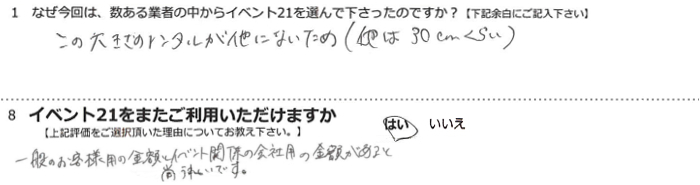 1 なぜ今回は、数ある業者の中からイベント21を選んで下さったのですか？【下記余白にご記入下さい】
この大きさのレンタルが他にないため（他は30cmくらい）
8 イベント21をまたご利用いただけますか
【上記評価をご選択頂いた理由についてお教え下さい。】
はい いいえ
一般のお客様用の金額とイベント関係の会社用の金額があると
尚うれしいです。